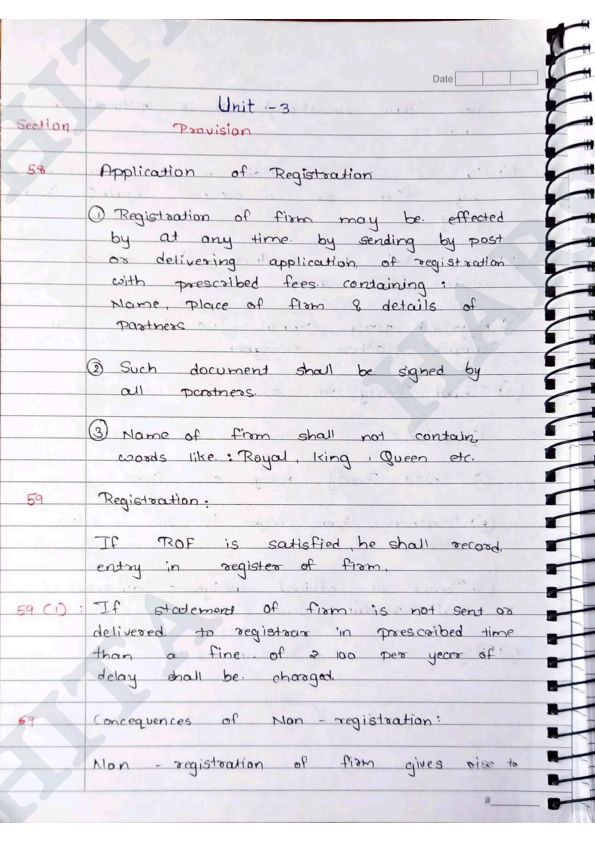 Date
Unit - 3
Section Provision
58 Application of Registration
① Registration of firm may be effected
by at any time by sending by post
or delivering application of registration
with prescribed fees containing :
Name, Place of firm & details of
partners
② Such document shall be signed by
all partners.
③ Name of firm shall not contain
words like : Royal, King, Queen etc.
59 Registration :
If ROF is satisfied, he shall record
entry in register of firm.
59 (1) : If statement of firm is not sent or
delivered to registrar in prescribed time
than a fine of ₹ 100 per year of
delay shall be charged.
69 Concequences of Non - registration :
Non - registration of firm gives rise to
#